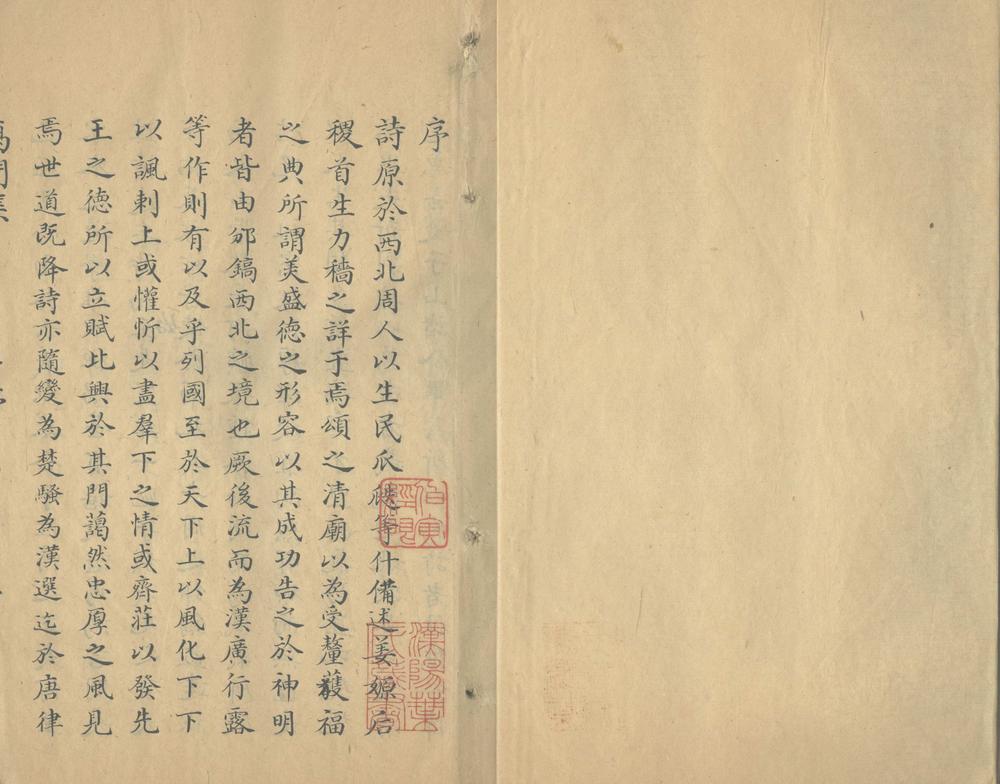 序
詩原於西北周人以生民瓜瓞等什備述姜嫄后
稷首生力穡之詳于焉頌之清廟以為受釐蒦福
之典所謂美盛德之形容以其成功告之於神明
者皆由邠鎬西北之境也厥後流而為漢廣行露
等作則有以及乎列國至於天下上以風化下下
以諷刺上或懽忻以盡羣下之情或齊莊以發先
王之德所以立賦比興於其門藹然忠厚之風見
焉世道既降詩亦隨變為楚騷為漢選迄於唐律
伯寅
漢陽葉